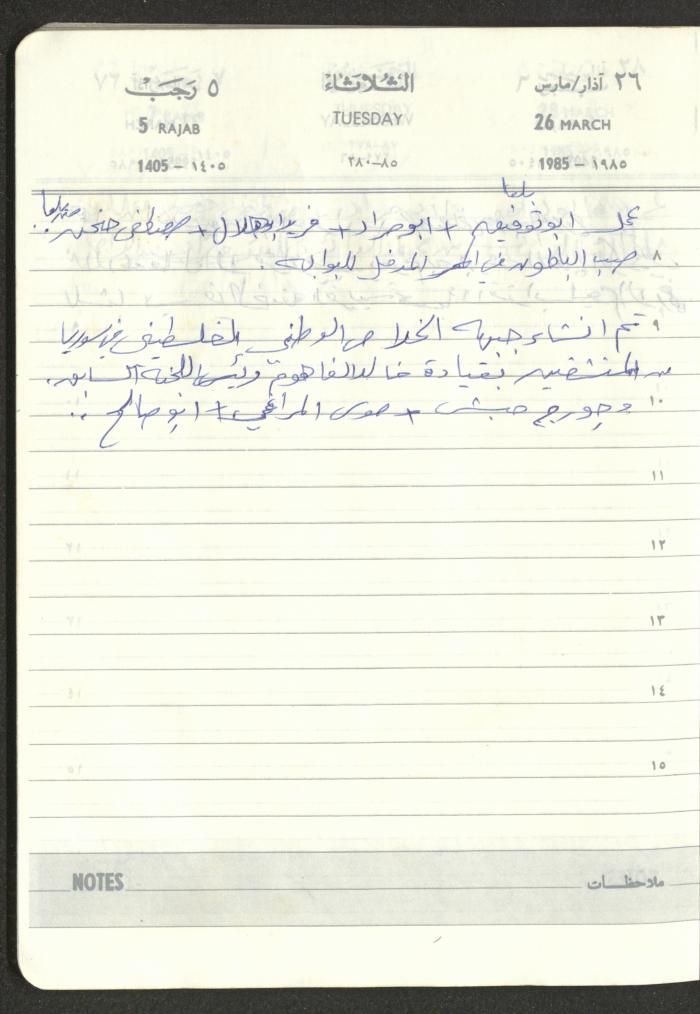 ٢٦ آذار/مارس الثلاثاء ٥ رجب
26 MARCH TUESDAY 5 RAJAB
1985 – ١٩٨٥ ٨٥–٢٨٠ 1405 – ١٤٠٥
عمل ابو توفيق + ابو مراد + فريد ابو هلال + مصطفى
٨ صب الباطون في المدخل للبوابه .
٩ تم انشاء جبهه الخلاص الوطني الفلسطيني في سوريا
من المنشقين بقيادة خالد الفاهوم رئيس اللجنة السابق
١٠ وجورج حبش + موسى المراغي + ابو صالح
١١
١٢
١٣
١٤
١٥
NOTES ملاحظات